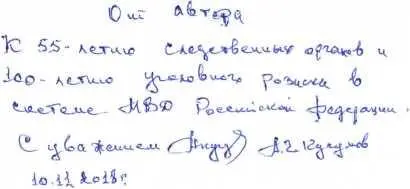 От автора
К 55-летию следственных органов и
100-летию уголовного розыска в
системе МВД Российской Федерации.
С уважением А.Г. Кулумов
10.11.2018г.